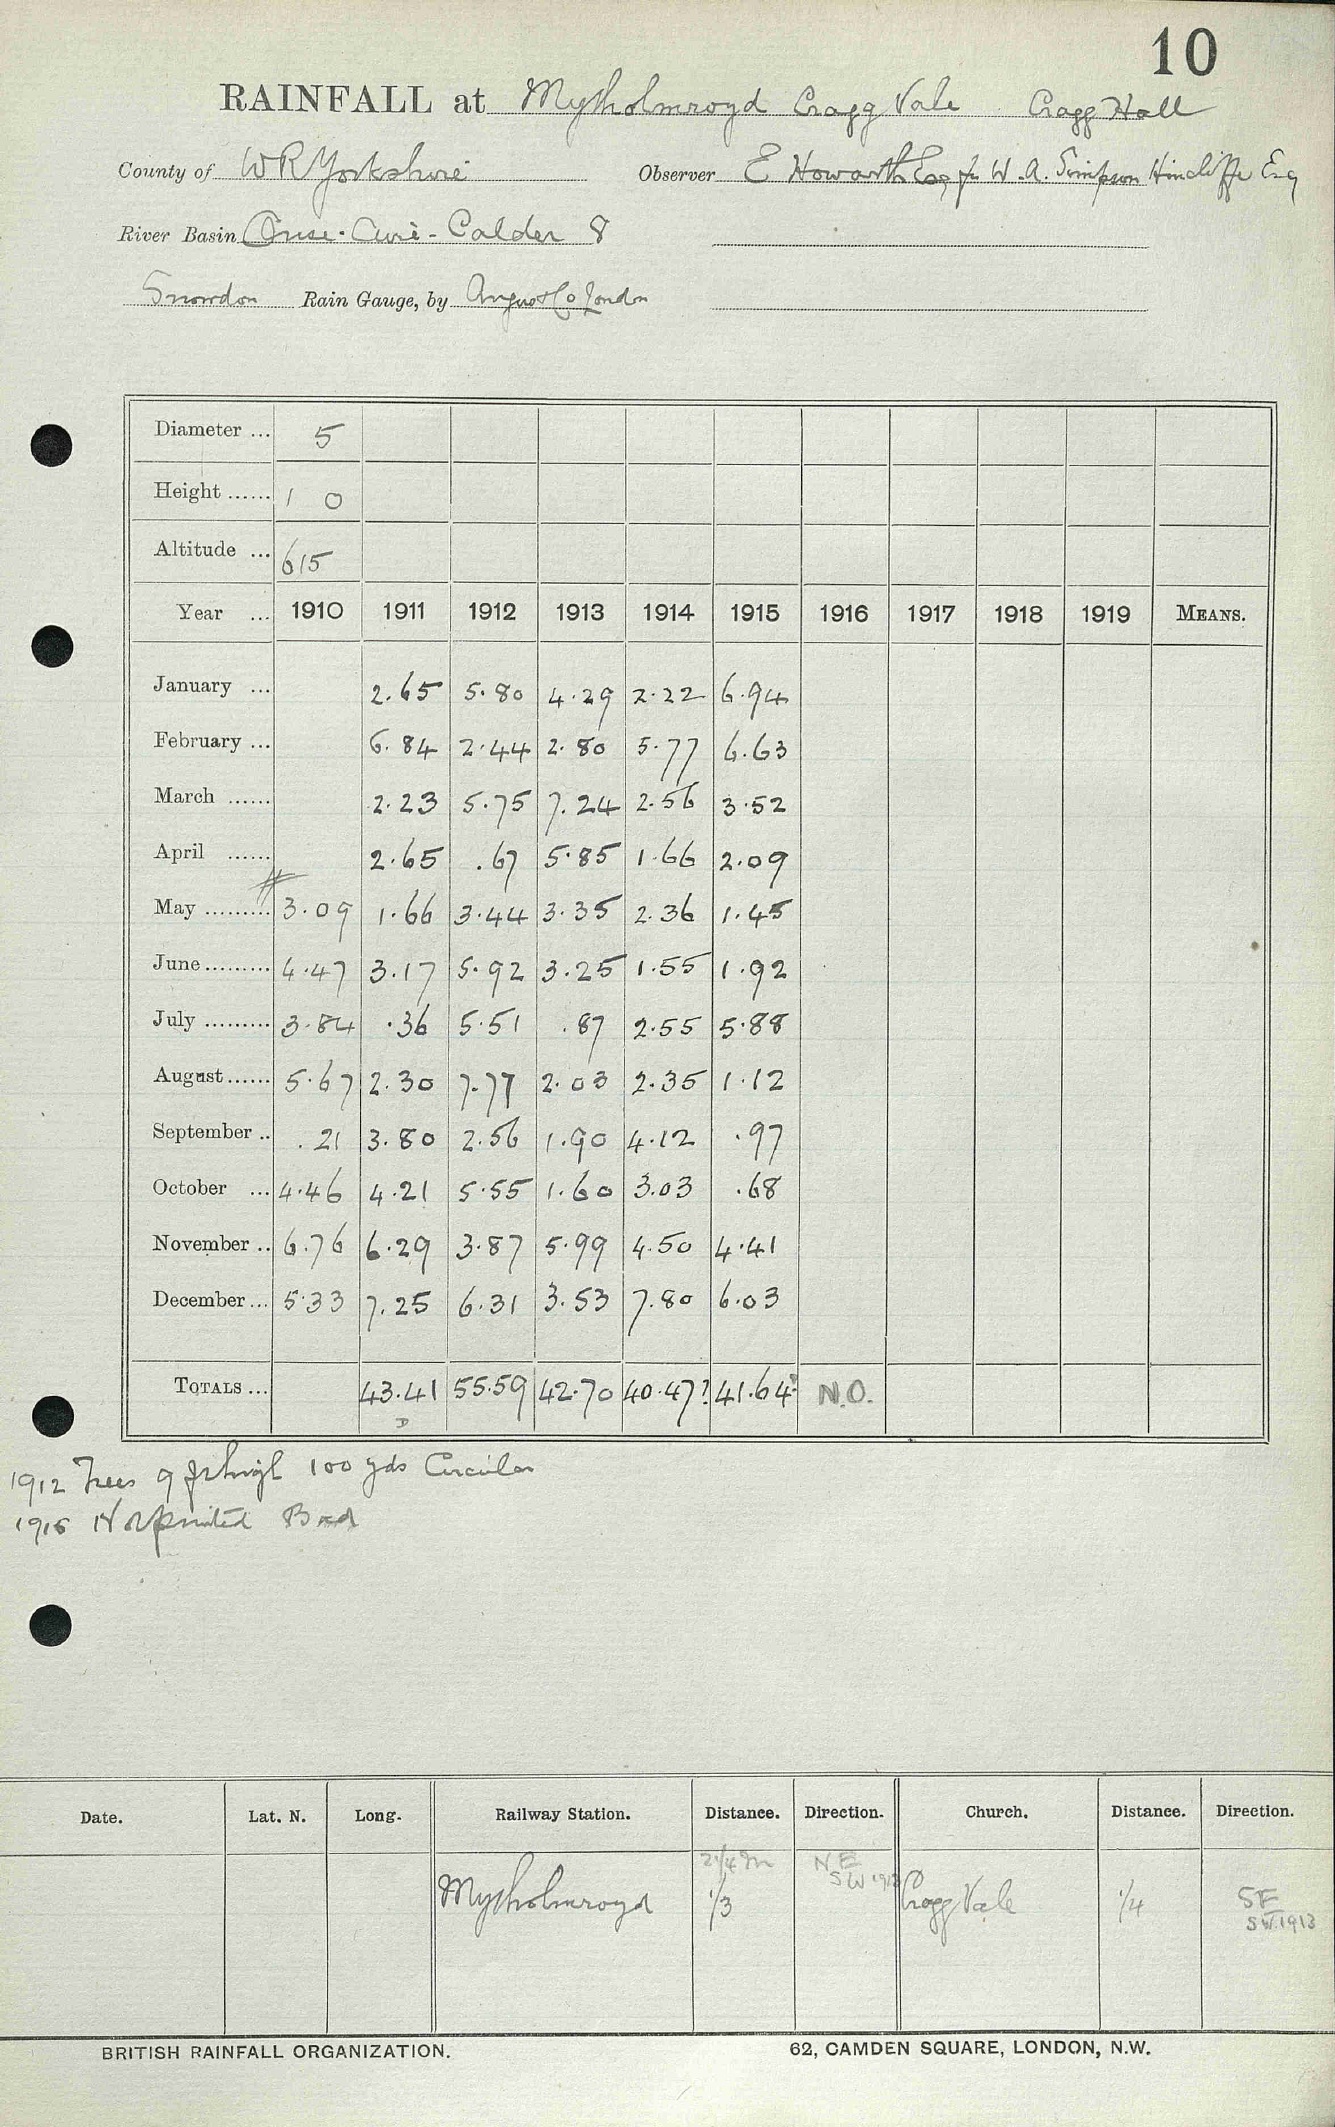 10
RAINFALL at Mytholmroyd Cragg Vale Cragg Hall
County of W R Yorkshire Observer E Howarth Esq for W. A. Simpson Hincliffe Esq
River Basin Ouse-Aire-Calder 8
Snowdon Rain Gauge, by Angus & Co London
Diameter ... 5
Height ...... 1 0
Altitude ... 615
Year ... 1910 1911 1912 1913 1914 1915 1916 1917 1918 1919 MEANS.
January ... 2.65 5.80 4.29 2.22 6.94
February ... 6.84 2.44 2.80 5.77 6.63
March ...... 2.23 5.75 7.24 2.56 3.52
April ...... 2.65 .67 5.85 1.66 2.09
May ......... 3.09 1.66 3.44 3.35 2.36 1.45
June ......... 4.47 3.17 5.92 3.25 1.55 1.92
July ......... 3.84 .36 5.51 .87 2.55 5.88
August ...... 5.67 2.30 7.77 2.03 2.35 1.12
September .. .21 3.80 2.56 1.90 4.12 .97
October ... 4.46 4.21 5.55 1.60 3.03 .68
November .. 6.76 6.29 3.87 5.99 4.50 4.41
December ... 5.33 7.25 6.31 3.53 7.80 6.03
TOTALS ... 43.41 55.59 42.70 40.47? 41.64? N.O.
D
1912 Trees 9 ft high 100 yds Circular
1915 Not printed Bad
Date. Lat. N. Long. Railway Station. Distance. Direction. Church. Distance. Direction.
2 1/4 m N.E
SW 1913
Mytholmroyd 1/3 Cragg Vale 1/4 SE
SW.1913
BRITISH RAINFALL ORGANIZATION. 62, CAMDEN SQUARE, LONDON, N.W.